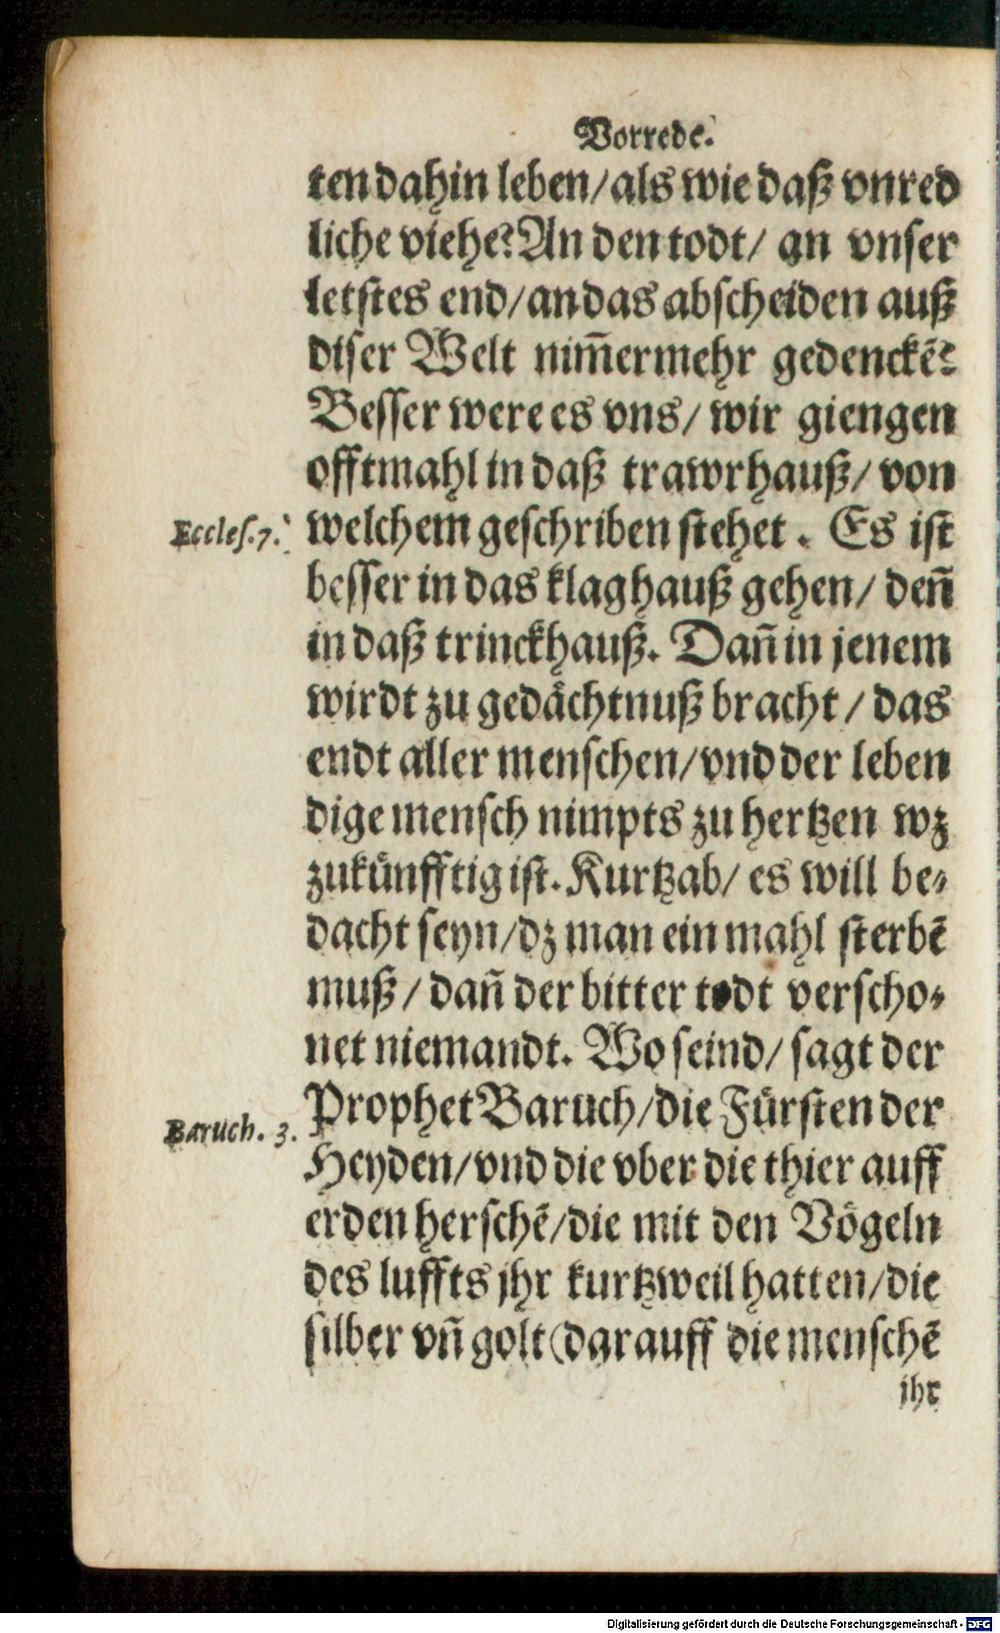 Vorrede.
ten dahin leben/als wie daß vnred
liche viehe? An den todt/ an vnser
letstes end/an das abscheiden auß
diser Welt nim̄ermehr gedenckē?
Besser were es vns/ wir giengen
offtmahl in daß trawrhauß/ von
Eccles. 7. welchem geschriben stehet. Es ist
besser in das klaghauß gehen/ den̄
in daß trinckhauß. Dan̄ in jenem
wirdt zu gedächtnuß bracht/ das
endt aller menschen/vnd der leben
dige mensch nimpts zu hertzen wz
zukünfftig ist. Kurtzab/ es will be-
dacht seyn/dz man ein mahl sterbē
muß/ dan̄ der bitter todt verscho-
net niemandt. Wo seind/ sagt der
Baruch. 3. Prophet Baruch/die Fürsten der
Heyden/vnd die vber die thier auff
erden herschē/die mit den Vögeln
des luffts jhr kurtzweil hatten/die
silber vn̄ golt (darauff die menschē
jhr
Digitalisierung gefördert durch die Deutsche Forschungsgemeinschaft - DFG